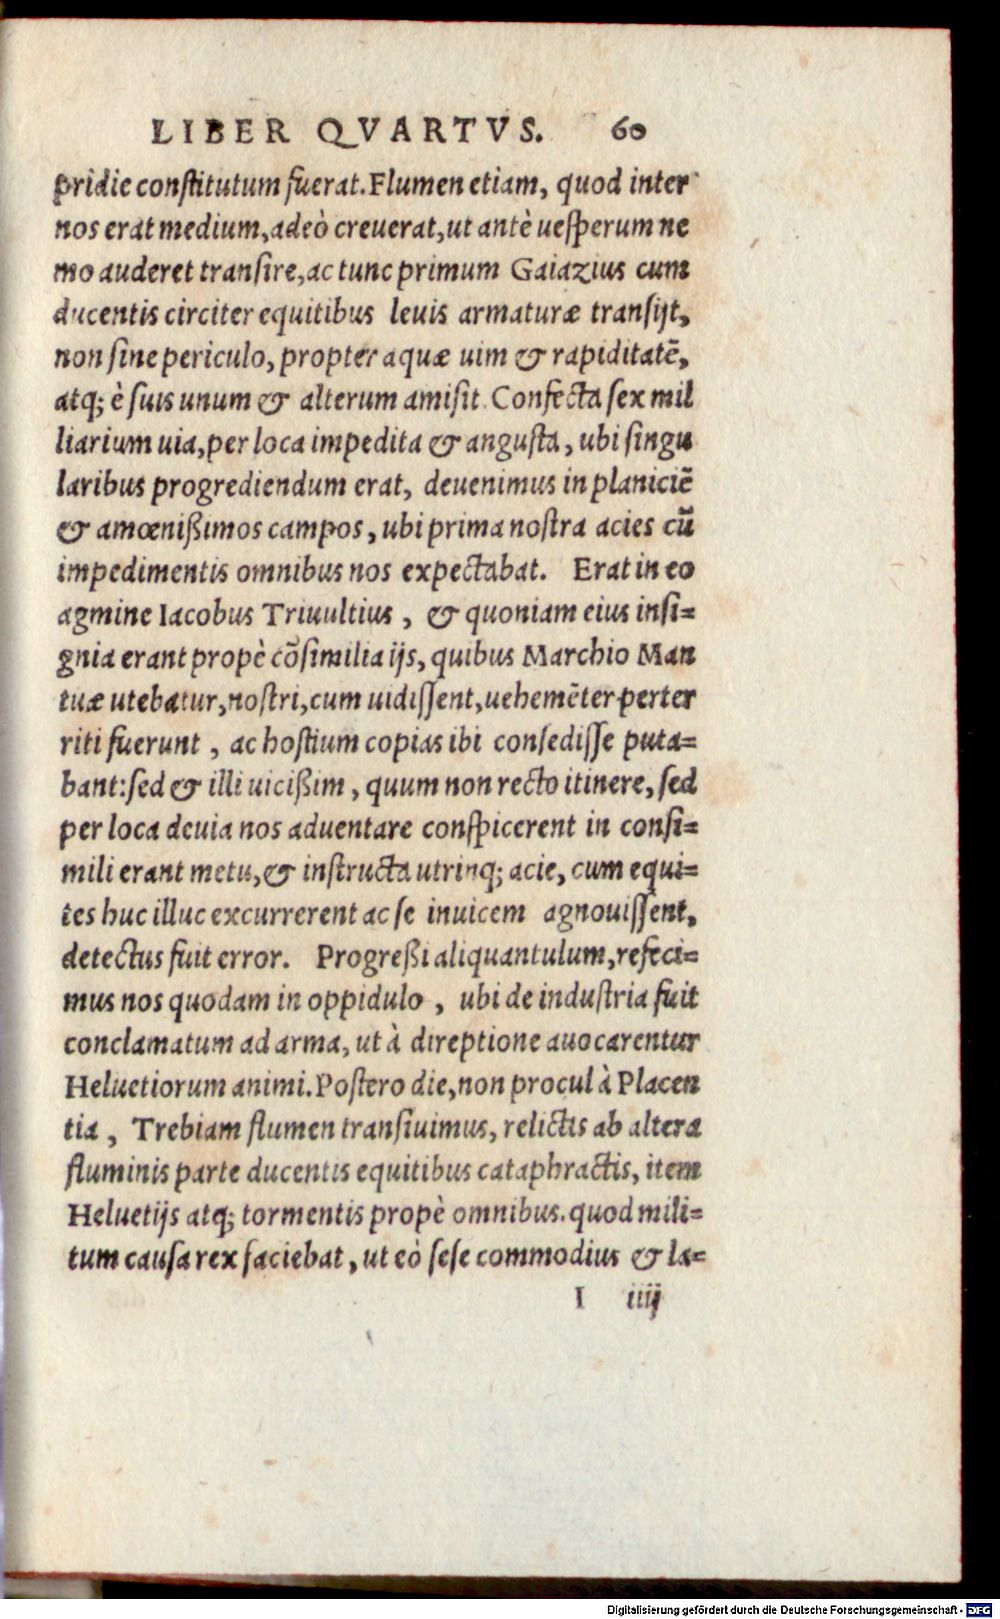 LIBER QVARTVS. 60
pridie constitutum fuerat. Flumen etiam, quod inter
nos erat medium, adeò creuerat, ut antè uesperum ne
mo auderet transire, ac tunc primum Gaiazius cum
ducentis circiter equitibus leuis armaturæ transijt,
non sine periculo, propter aquæ uim & rapiditatē,
atq; è suis unum & alterum amisit. Confecta sex mil
liarium uia, per loca impedita & angusta, ubi singu
laribus progrediendum erat, deuenimus in planiciē
& amœnißimos campos, ubi prima nostra acies cū
impedimentis omnibus nos expectabat. Erat in eo
agmine Iacobus Triuultius, & quoniam eius insi=
gnia erant propè cōsimilia ijs, quibus Marchio Man
tuæ utebatur, nostri, cum uidissent, uehemēter perter
riti fuerunt, ac hostium copias ibi consedisse puta=
bant: sed & illi uicißim, quum non recto itinere, sed
per loca deuia nos aduentare conspicerent in consi=
mili erant metu, & instructa utrinq; acie, cum equi=
tes huc illuc excurrerent ac se inuicem agnouissent,
detectus fuit error. Progreßi aliquantulum, refeci=
mus nos quodam in oppidulo, ubi de industria fuit
conclamatum ad arma, ut à direptione auocarentur
Heluetiorum animi. Postero die, non procul à Placen
tia, Trebiam flumen transiuimus, relictis ab altera
fluminis parte ducentis equitibus cataphractis, item
Heluetijs atq; tormentis propè omnibus. quod mili=
tum causa rex faciebat, ut eò sese commodius & la=
I iiij
Digitalisierung gefördert durch die Deutsche Forschungsgemeinschaft - DFG